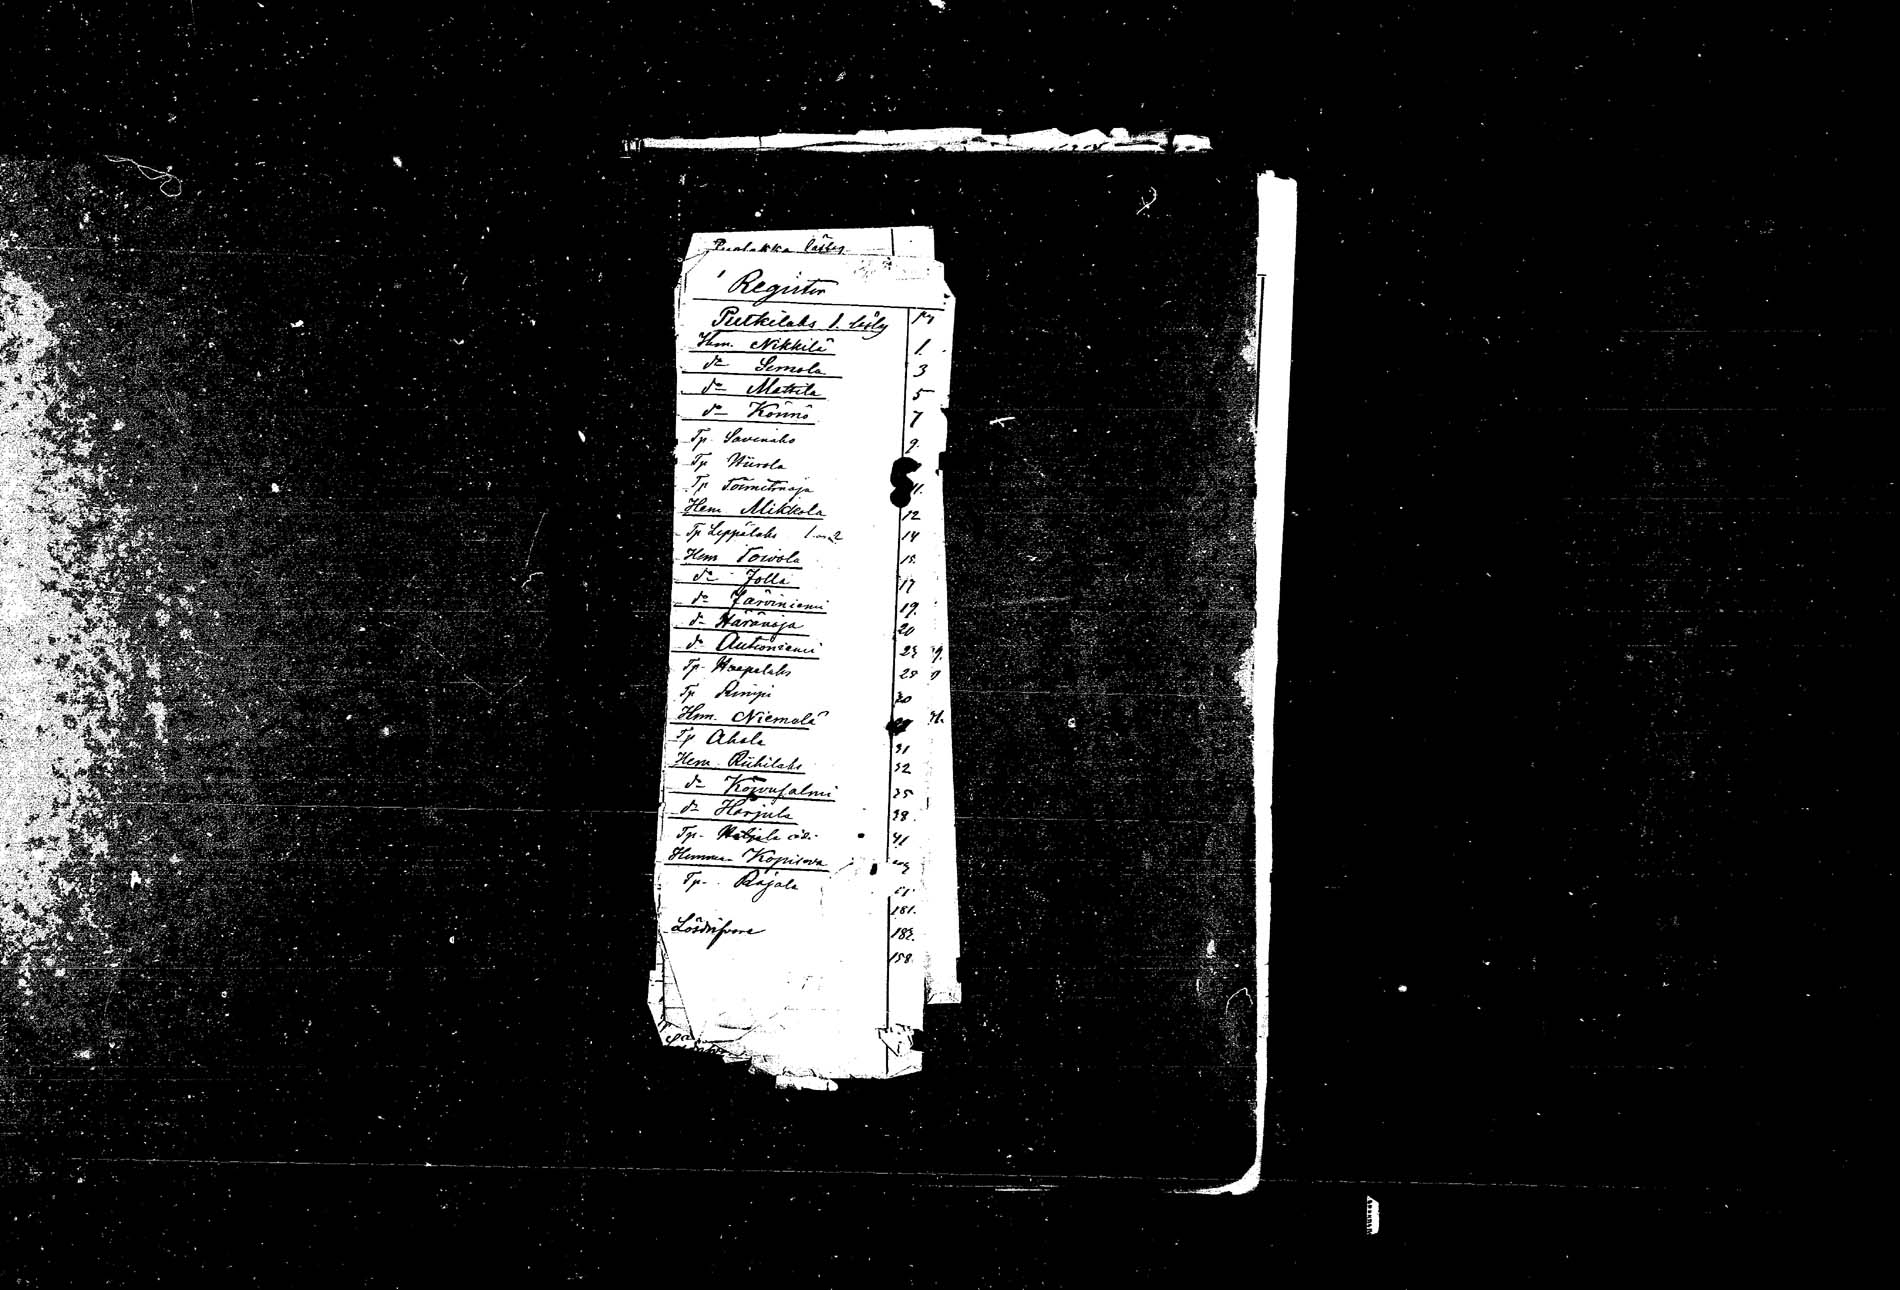 Puolakka läsbey
Register
Putkilaks 1. läsby pag
Hem. Nikkilä 1.
do Semola 3
do Mattila 5
do Könnö 7
Tp. Savenaho 9.
Tp Wirola
Tp Toimitusoja 11.
Hem Mikkola 12
Tp Leppälaks 1 o 2 14
Hem Toivola 15.
do Jolla 17
do Järviniemi 19.
do Häränoja 20
do Autioniemi 23
Tp. Haapalaks 28
Tp Rimpi 30
Hem. Niemelä
Tp Ahola 31
Hem Riihilaks 32
do Koivusalmi 35
do Harjula 38.
Tp. 41
Hemman Kopisova
Tp. Rajala
181.
Lösdrifvare 183.
158.